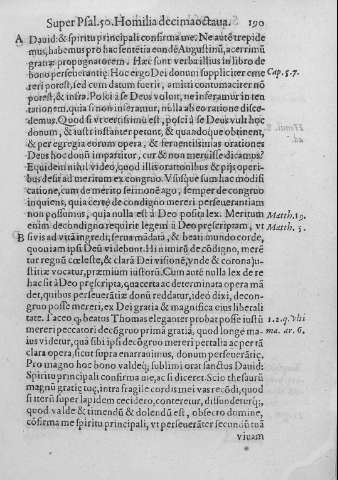 Super Psal. 50. Homilia decimaoctaua. 190
A Dauid: & spiritu principali confirma me. Ne aute trepide
mus, habemus pro hac sentētia eundē Augustinū, acerrimū
gratiæ propugnatorem. Hæc sunt verba illius in libro de
bono perseuerantiæ. Hoc ergo Dei donum suppliciter eme
reri potest, sed cum datum fuerit, amitti contumaciter nō Cap. 5. 7.
potest, & infra. Posci à se Deus voluit, ne inferamur in ten
tationem, quia si non inferamur, nulla ab eo ratione disce-
demus. Quod si vt certissimū est, posci à se Deus vult hoc
donum, & iusti instanter petunt, & quandoque obtinent,
& per egregia eorum opera, & feruentissimas orationes
Deus hoc donū impartitur, cur & non meruisse dicamus?
Equidem nihil video, quod illis orationibus & pijs operi-
bus desit ad meritum ex congruo. Vsisque sum hac modifi
catione, cum de merito sermonē ago, semper de congruo
inquiens, quia certè de condigno mereri perseuerantiam
non possumus, quia nulla est à Deo posita lex. Meritum Matth. 19.
enim decondigno requirit legem à Deo præscriptam, vt Matth. 5.
B si vis ad vitā ingredi, serua mādatā, & beati mundo corde,
quoniam ipsi Deū videbunt. Hi n intrāt de cōdigno, merē
tur regnū cœleste, & clarā Dei visionē, ynde & corona ju-
stitiæ vocatur, præmium iustorū. Cum autē nulla lex de re
hac sit à Deo præscripta, qua certa ac determinata opera mā
det, quibus perseuerātiæ donū reddatur, ideò dixi, decon-
gruo posse mereri, ex Dei gratia & magnifica eius liberali
tate. Iaceo q. beatus Thomas eleganter probat posse iustū 1. 2. q. Vlti
mereri peccatori decōgruo primā gratiā, quod longè ma- ma. ar. 6.
ius videtur, quā sibi ipsi decōgruo mereri per talia ac per tā
clara opera, sicut supra enarrauimus, donum perseuerātiæ.
Pro magno hoc bono valdeq́; sublimi orat sanctus Dauid:
Spiritu principali confirma me, ac si diceret. Scio thesaurū
magnū gratiæ tuę, intra fragile cordis mei vas recōdi, quod
si iterū super lapidem cecidero, conteretur, diffunderurq́;,
quod valde & timendū & dolendū est, obsecro domine,
cōfirma me spiritu principali, vt perseuerāter secundū tuā
viuam